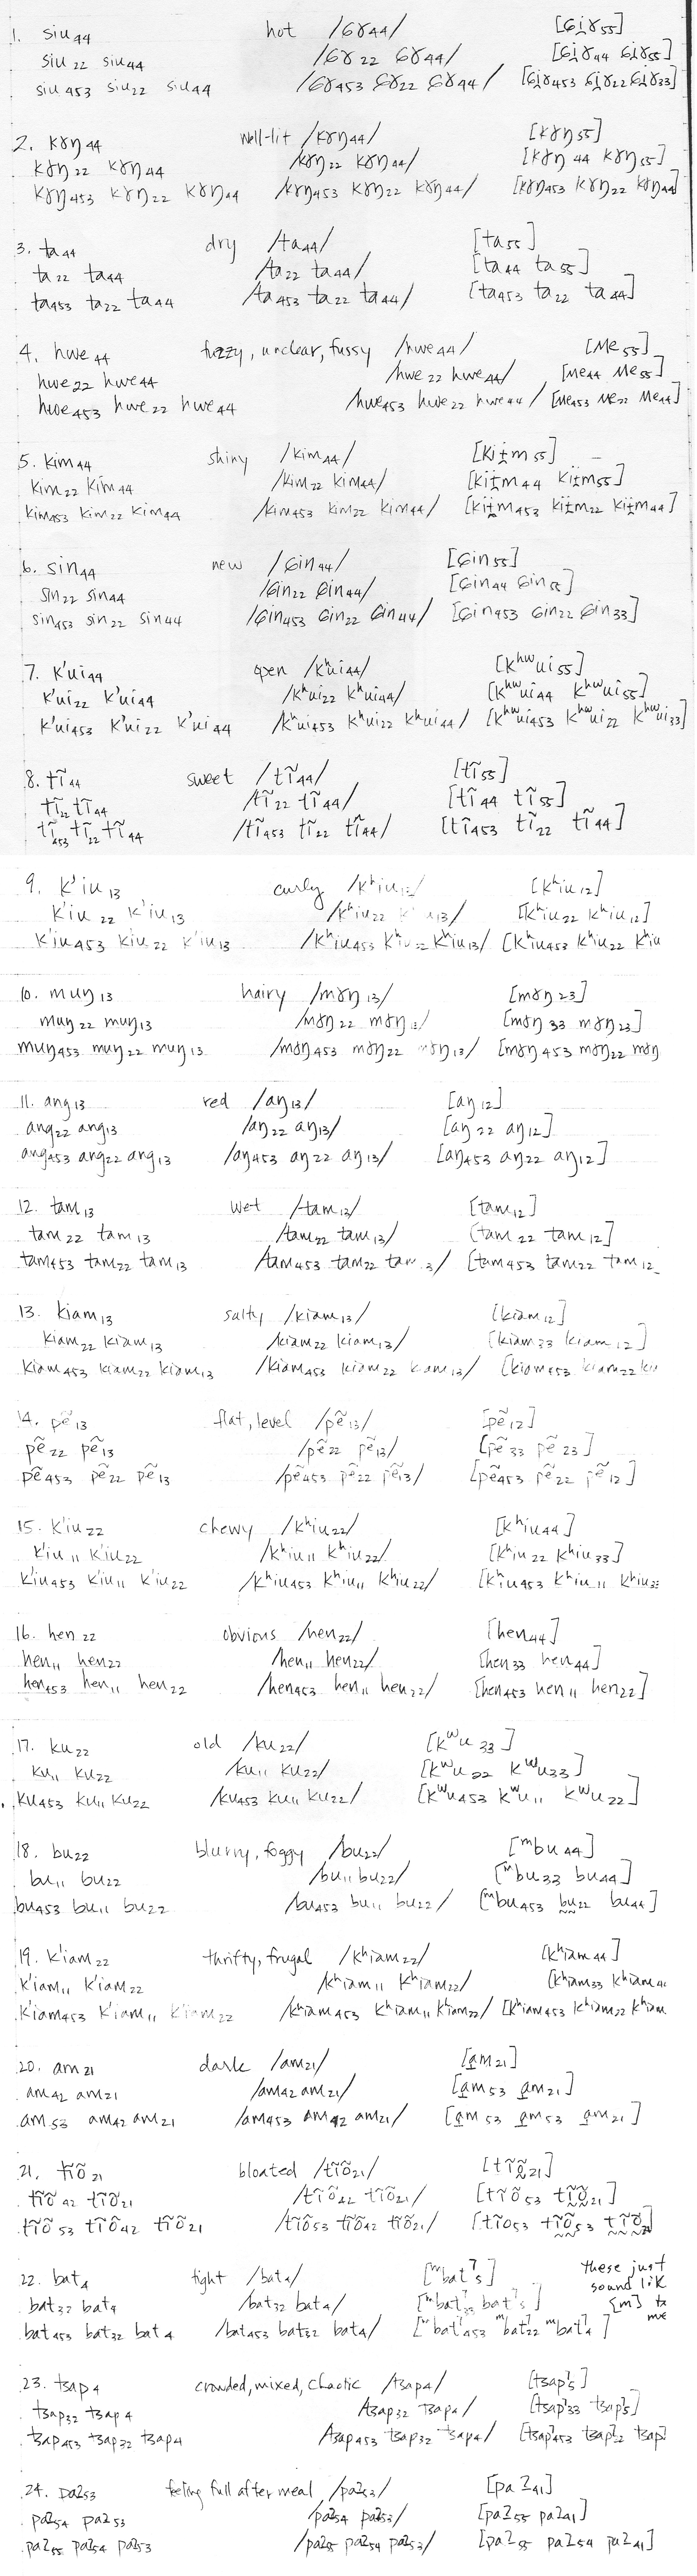 1. siu44 hot /ɕɤ44/ [ɕi̤ɤ55]
siu22 siu44 /ɕɤ22 ɕɤ44/ [ɕi̤ɤ44 ɕi̤ɤ55]
siu453 siu22 siu44 /ɕɤ453 ɕɤ22 ɕɤ44/ [ɕi̤ɤ453 ɕi̤ɤ22 ɕi̤ɤ33]
2. kɤŋ44 well-lit /kɤŋ44/ [kɤŋ55]
kɤŋ22 kɤŋ44 /kɤŋ22 kɤŋ44/ [kɤŋ44 kɤŋ55]
kɤŋ453 kɤŋ22 kɤŋ44 /kɤŋ453 kɤŋ22 kɤŋ44/ [kɤŋ453 kɤŋ22 kɤŋ44]
3. ta44 dry /ta44/ [ta55]
ta22 ta44 /ta22 ta44/ [ta44 ta55]
ta453 ta22 ta44 /ta453 ta22 ta44/ [ta453 ta22 ta44]
4. hwe44 fuzzy, unclear, fussy /hwe44/ [ʍe55]
hwe22 hwe44 /hwe22 hwe44/ [ʍe44 ʍe55]
hwe453 hwe22 hwe44 /hwe453 hwe22 hwe44/ [ʍe453 ʍe22 ʍe44]
5. kim44 shiny /kim44/ [kiɨm55]
kim22 kim44 /kim22 kim44/ [kiɨm44 kiɨm55]
kim453 kim22 kim44 /kim453 kim22 kim44/ [kiɨm453 kiɨm22 kiɨm44]
6. sin44 new /ɕin44/ [ɕin55]
sin22 sin44 /ɕin22 ɕin44/ [ɕin44 ɕin55]
sin453 sin22 sin44 /ɕin453 ɕin22 ɕin44/ [ɕin453 ɕin22 ɕin33]
7. k'ui44 open /kʰui44/ [kʰʷui55]
k'ui22 k'ui44 /kʰui22 kʰui44/ [kʰʷui44 kʰʷui55]
k'ui453 k'ui22 k'ui44 /kʰui453 kʰui22 kʰui44/ [kʰʷui453 kʰʷui22 kʰʷui33]
8. tĩ44 sweet /tĩ44/ [tĩ55]
tĩ22 tĩ44 /tĩ22 tĩ44/ [tĩ44 tĩ55]
tĩ453 tĩ22 tĩ44 /tĩ453 tĩ22 tĩ44/ [tĩ453 tĩ22 tĩ44]
9. k'iu13 curly /kʰiu13/ [kʰiu12]
k'iu22 k'iu13 /kʰiu22 kʰiu13/ [kʰiu22 kʰiu12]
k'iu453 kiu22 k'iu13 /kʰiu453 kʰiu22 kʰiu13/ [kʰiu453 kʰiu22 kʰiu
10. muŋ13 hairy /mɤŋ13/ [mɤŋ23]
muŋ22 muŋ13 /mɤŋ22 mɤŋ13/ [mɤŋ33 mɤŋ23]
muŋ453 muŋ22 muŋ13 /mɤŋ453 mɤŋ22 mɤŋ13/ [mɤŋ453 mɤŋ22 mɤŋ
11. ang13 red /aŋ13/ [aŋ12]
ang22 ang13 /aŋ22 aŋ13/ [aŋ22 aŋ12]
ang453 ang22 ang13 /aŋ453 aŋ22 aŋ13/ [aŋ453 aŋ22 aŋ12]
12. tam13 wet /tam13/ [tam12]
tam22 tam13 /tam22 tam13/ [tam22 tam12]
tam453 tam22 tam13 /tam453 tam22 tam13/ [tam453 tam22 tam12
13. kiam13 salty /kiam13/ [kiam12]
kiam22 kiam13 /kiam22 kiam13/ [kiam33 kiam12]
kiam453 kiam22 kiam13 /kiam453 kiam22 kiam13/ [kiam453 kiam22 kia
14. pẽ13 flat, level /pẽ13/ [pẽ12]
pẽ22 pẽ13 /pẽ22 pẽ13/ [pẽ33 pẽ23]
pẽ453 pẽ22 pẽ13 /pẽ453 pẽ22 pẽ13/ [pẽ453 pẽ22 pẽ12]
15. k'iu22 chewy /kʰiu22/ [kʰiu44]
k'iu11 k'iu22 /kʰiu11 kʰiu22/ [kʰiu22 kʰiu33]
k'iu453 k'iu11 k'iu22 /kʰiu453 kʰiu11 kʰiu22/ [kʰiu453 kʰiu11 kʰiu33
16. hen22 obvious /hen22/ [hen44]
hen11 hen22 /hen11 hen22/ [hen33 hen44]
hen453 hen11 hen22 /hen453 hen11 hen22/ [hen453 hen11 hen22]
17. ku22 old /ku22/ [kʷu33]
ku11 ku22 /ku11 ku22/ [kʷu22 kʷu33]
ku453 ku11 ku22 /ku453 ku11 ku22/ [kʷu453 kʷu11 kʷu22]
18. bu22 blurry, foggy /bu22/ [ᵐbu44]
bu11 bu22 /bu11 bu22/ [ᵐbu33 bu44]
bu453 bu11 bu22 /bu453 bu11 bu22/ [ᵐbu453 bu22 bu44]
19. k'iam22 thrifty, frugal /kʰiam22/ [kʰiam44]
k'iam11 k'iam22 /kʰiam11 kʰiam22/ [kʰiam33 kʰiam44
k'iam453 k'iam11 k'iam22 /kʰiam453 kʰiam11 kʰiam22/ [kʰiam453 kʰiam22 kʰiam
20. am21 dark /am21/ [a̰m21]
am42 am21 /am42 am21/ [a̰m53 a̰m21]
am53 am42 am21 /am453 am42 am21/ [a̰m53 a̰m53 a̰m21]
21. tĩõ21 bloated /tĩõ21/ [tĩõ̰21]
tĩõ42 tĩõ21 /tĩõ42 tĩõ21/ [tĩõ53 tḭ̃õ̰21]
tĩõ53 tĩõ42 tĩõ21 /tĩõ53 tĩõ42 tĩõ21/ [tĩõ53 tḭ̃õ̰53 tḭ̃õ̰21]
22. bat4 tight /bat4/ [ᵐbat̚5]
bat32 bat4 /bat32 bat4/ [ᵐbat̚33 bat̚5]
bat453 bat32 bat4 /bat453 bat32 bat4/ [ᵐbat̚453 ᵐbat̚22 ᵐbat̚4]
these just
sound lik
[m] to
me
23. tsap4 crowded, mixed, chaotic /tsap4/ [tsap̚5]
tsap32 tsap4 /tsap32 tsap4/ [tsap̚33 tsap̚5]
tsap453 tsap32 tsap4 /tsap453 tsap32 tsap4/ [tsap̚453 tsap̚32 tsap̚
24. paʔ53 feeling full after meal /paʔ53/ [paʔ41]
paʔ54 paʔ53 /paʔ54 paʔ53/ [paʔ55 paʔ41]
paʔ55 paʔ54 paʔ53 /paʔ55 paʔ54 paʔ53/ [paʔ55 paʔ54 paʔ41]